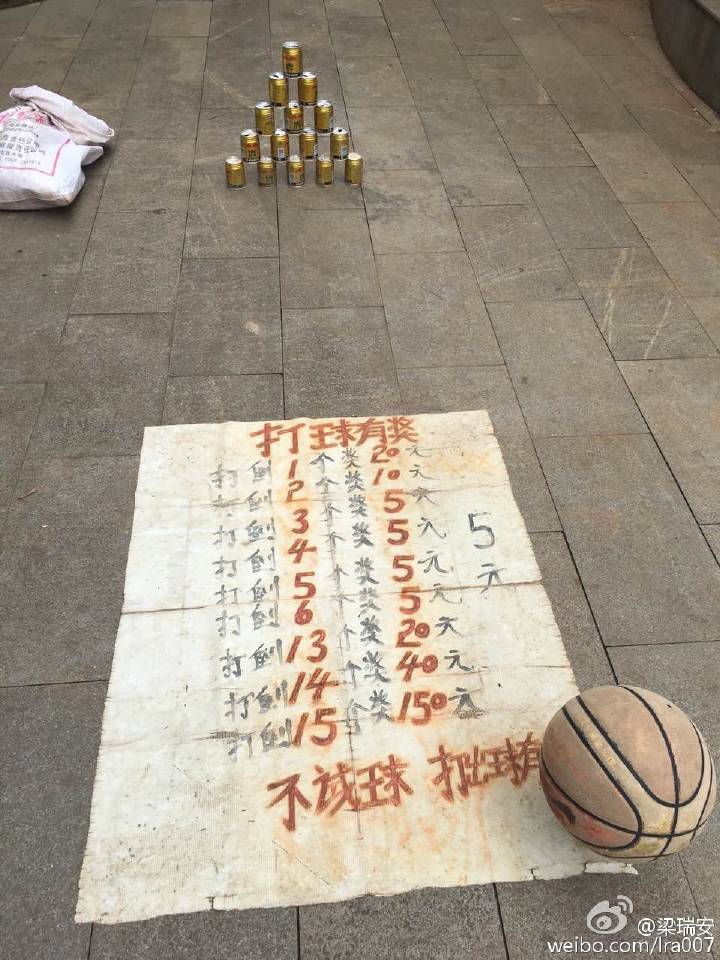 打球有奖
打倒1个奖20元
打倒2个奖10元
打倒3个奖5元
打倒4个奖5元
打倒5个奖5元
打倒6个奖5元
打倒13个奖20元
打倒14个奖40元
打倒15个奖150元
5元
不试球 打出球有
@梁瑞安
weibo.com/lra007